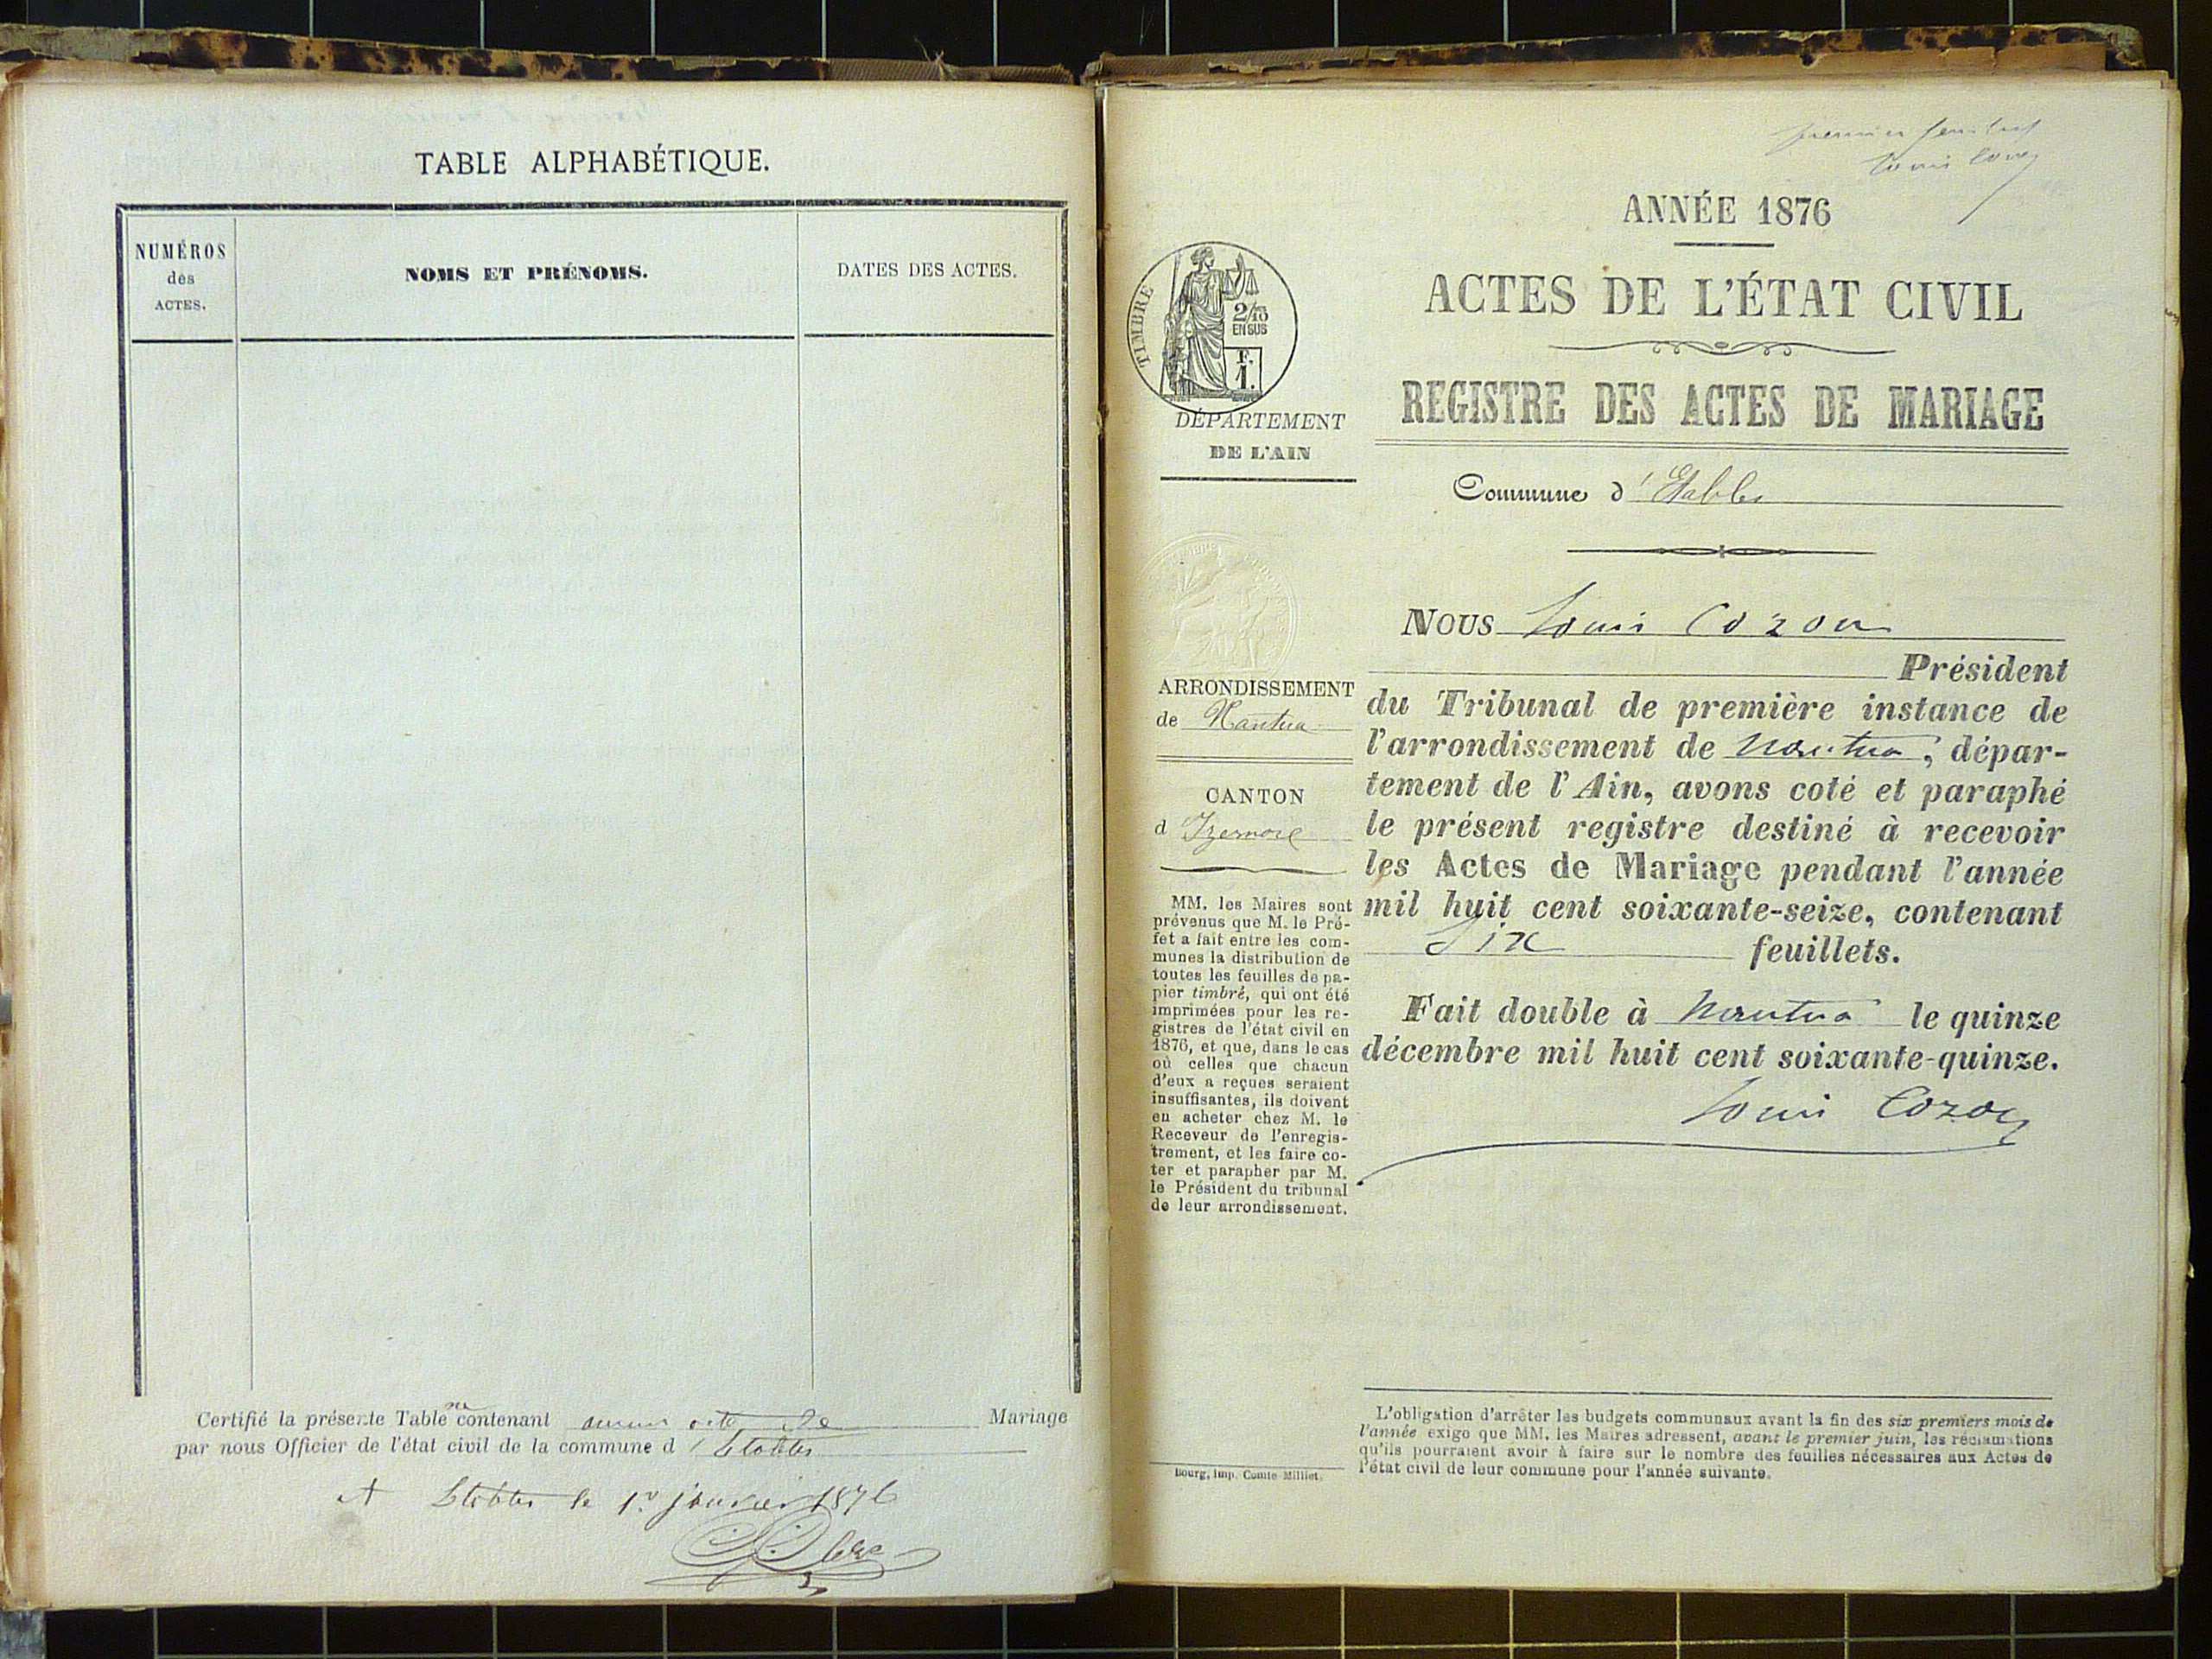 TABLE ALPHABÉTIQUE.
NUMÉROS
des
ACTES.
NOMS ET PRÉNOMS.
DATES DES ACTES.
Certifié la présente Table ne contenant aucun acte de Mariage
par nous Officier de l'état civil de la commune d'Etables
A Etables le 1er janvier 1876
premier feuillet
Louis Cozon
ANNÉE 1876
ACTES DE L'ÉTAT CIVIL
REGISTRE DES ACTES DE MARIAGE
TIMBRE
2/10
EN SUS
F.
1.
DÉPARTEMENT
DE L'AIN
Commune d'Etables
ARRONDISSEMENT
de Nantua
CANTON
d'Izernore
MM. les Maires sont
prévenus que M. le Pré-
fet a fait entre les com-
munes la distribution de
toutes les feuilles de pa-
pier timbré, qui ont été
imprimées pour les re-
gistres de l'état civil en
1876, et que, dans le cas
où celles que chacun
d'eux a reçues seraient
insuffisantes, ils doivent
en acheter chez M. le
Receveur de l'enregis-
trement, et les faire co-
ter et parapher par M.
le Président du tribunal
de leur arrondissement.
NOUS Louis Cozon
Président
du Tribunal de première instance de
l'arrondissement de Nantua, dépar-
tement de l'Ain, avons coté et paraphé
le présent registre destiné à recevoir
les Actes de Mariage pendant l'année
mil huit cent soixante-seize, contenant
Six feuillets.
Fait double à Nantua le quinze
décembre mil huit cent soixante-quinze.
Louis Cozon
Bourg, imp. Comte Milliet.
L'obligation d'arrêter les budgets communaux avant la fin des six premiers mois de
l'année exige que MM. les Maires adressent, avant le premier juin, les réclamations
qu'ils pourraient avoir à faire sur le nombre des feuilles nécessaires aux Actes de
l'état civil de leur commune pour l'année suivante.